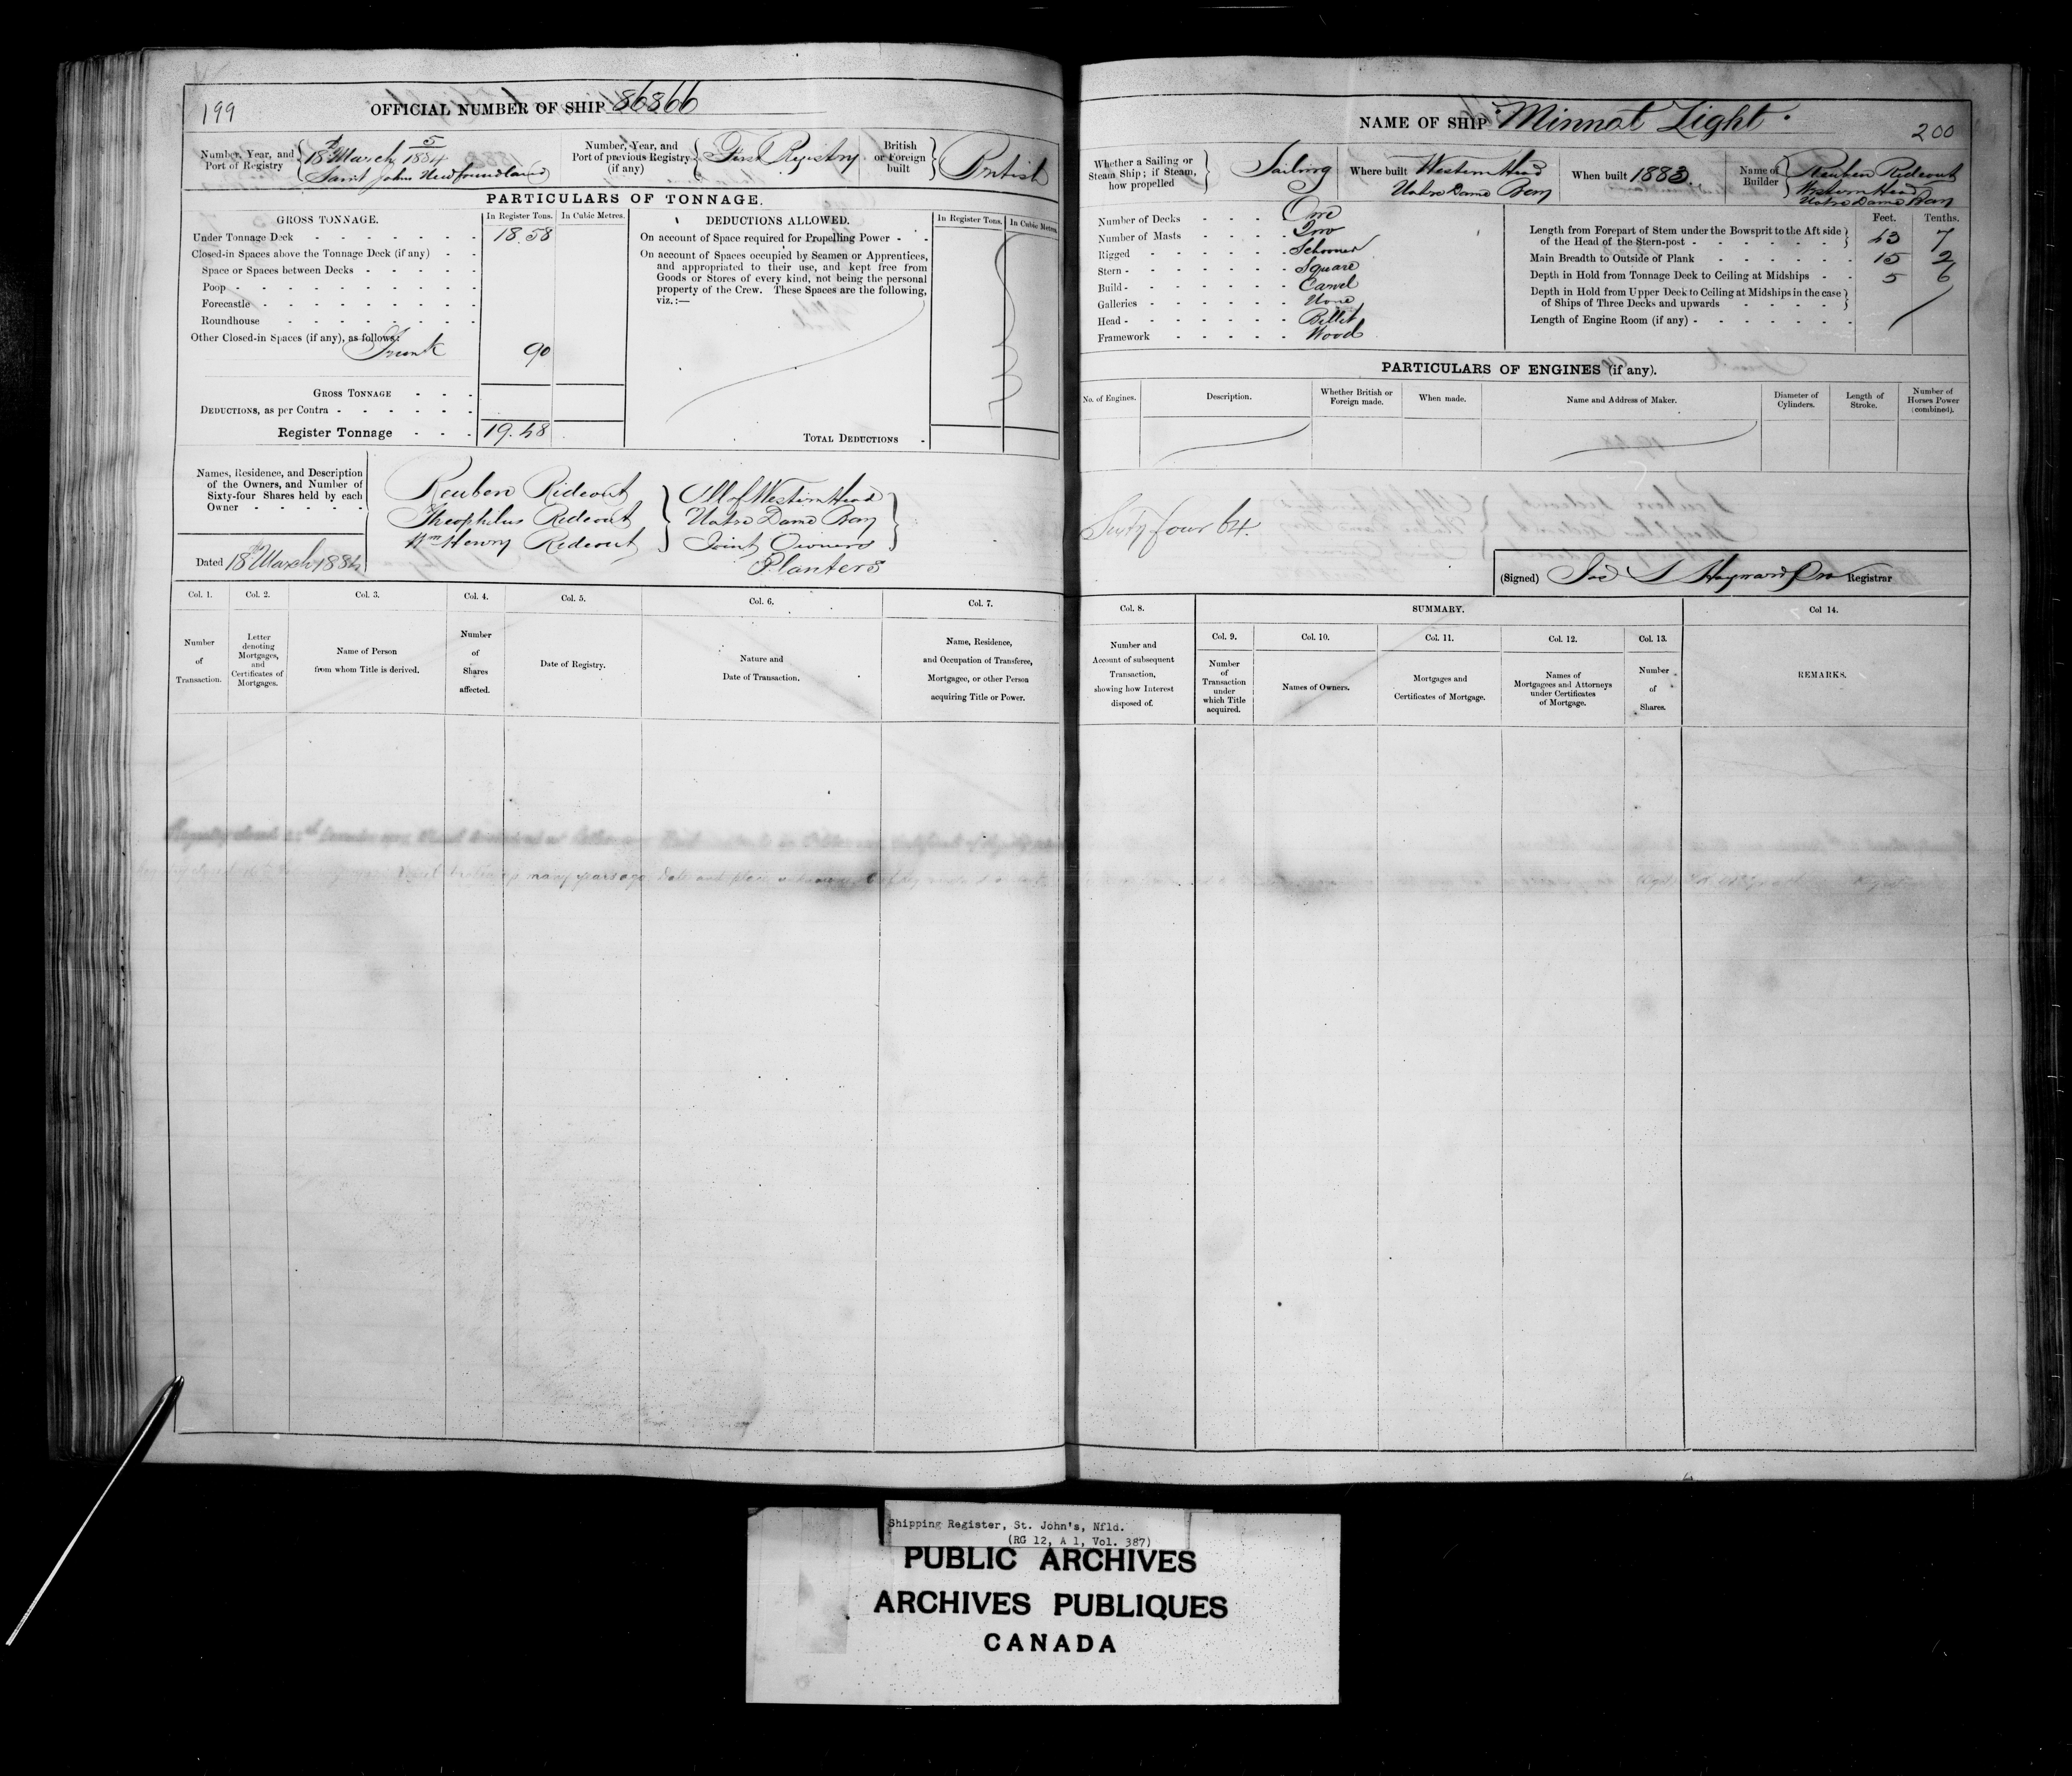 199
OFFICIAL NUMBER OF SHIP 86866
Number, Year, and Port of Registry
5
18th March 1884
Saint John's Newfoundland
Number, Year, and Port of previous Registry (if any)
First Registry
British or Foreign built
British
PARTICULARS OF TONNAGE.
GROSS TONNAGE.
In Register Tons.
In Cubic Metres.
DEDUCTIONS ALLOWED.
In Register Tons.
In Cubic Metres.
Under Tonnage Deck 18.58
Closed-in Spaces above the Tonnage Deck (if any)
Space or Spaces between Decks
Poop
Forecastle
Roundhouse
Other Closed-in Spaces (if any), as follows:
Trunk 90
GROSS TONNAGE
DEDUCTIONS, as per Contra
Register Tonnage 19.48
On account of Space required for Propelling Power
On account of Spaces occupied by Seamen or Apprentices,
and appropriated to their use, and kept free from
Goods or Stores of every kind, not being the personal
property of the Crew. These Spaces are the following,
viz.:—
TOTAL DEDUCTIONS
Names, Residence, and Description
of the Owners, and Number of
Sixty-four Shares held by each
Owner
Dated 18th March 1884
Reuben Rideout
Theophilus Rideout
Wm Henry Rideout
All of Western Head
Notre Dame Bay
Joint Owners
Planters
Col. 1.
Number of Transaction.
Col. 2.
Letter denoting Mortgages, and Certificates of Mortgages.
Col. 3.
Name of Person from whom Title is derived.
Col. 4.
Number of Shares affected.
Col. 5.
Date of Registry.
Col. 6.
Nature and Date of Transaction.
Col. 7.
Name, Residence, and Occupation of Transferee, Mortgagee, or other Person acquiring Title or Power.
many years ago, date and place unknown
NAME OF SHIP Minnot Light
200
Whether a Sailing or Steam Ship; if Steam, how propelled
Sailing
Where built Western Head
Notre Dame Bay
When built 1883.
Name of Builder
Reuben Rideout
Western Head
Notre Dame Bay
Number of Decks One
Number of Masts Two
Rigged Schooner
Stern Square
Build Carvel
Galleries None
Head Billet
Framework Wood
Feet. Tenths.
Length from Forepart of Stem under the Bowsprit to the Aft side
of the Head of the Stern-post 43 7
Main Breadth to Outside of Plank 15 2
Depth in Hold from Tonnage Deck to Ceiling at Midships 5 6
Depth in Hold from Upper Deck to Ceiling at Midships in the case
of Ships of Three Decks and upwards
Length of Engine Room (if any)
PARTICULARS OF ENGINES (if any).
No. of Engines.
Description.
Whether British or Foreign made.
When made.
Name and Address of Maker.
Diameter of Cylinders.
Length of Stroke.
Number of Horses Power (combined).
Sixty four 64.
(Signed) Jas S Hayward Registrar
Col. 8.
Number and Account of subsequent Transaction, showing how Interest disposed of.
SUMMARY.
Col. 9.
Number of Transaction under which Title acquired.
Col. 10.
Names of Owners.
Col. 11.
Mortgages and Certificates of Mortgage.
Col. 12.
Names of Mortgagees and Attorneys under Certificates of Mortgage.
Col. 13.
Number of Shares.
Col 14.
REMARKS.
Shipping Register, St. John's, Nfld.
(RG 12, A 1, Vol. 387)
PUBLIC ARCHIVES
ARCHIVES PUBLIQUES
CANADA